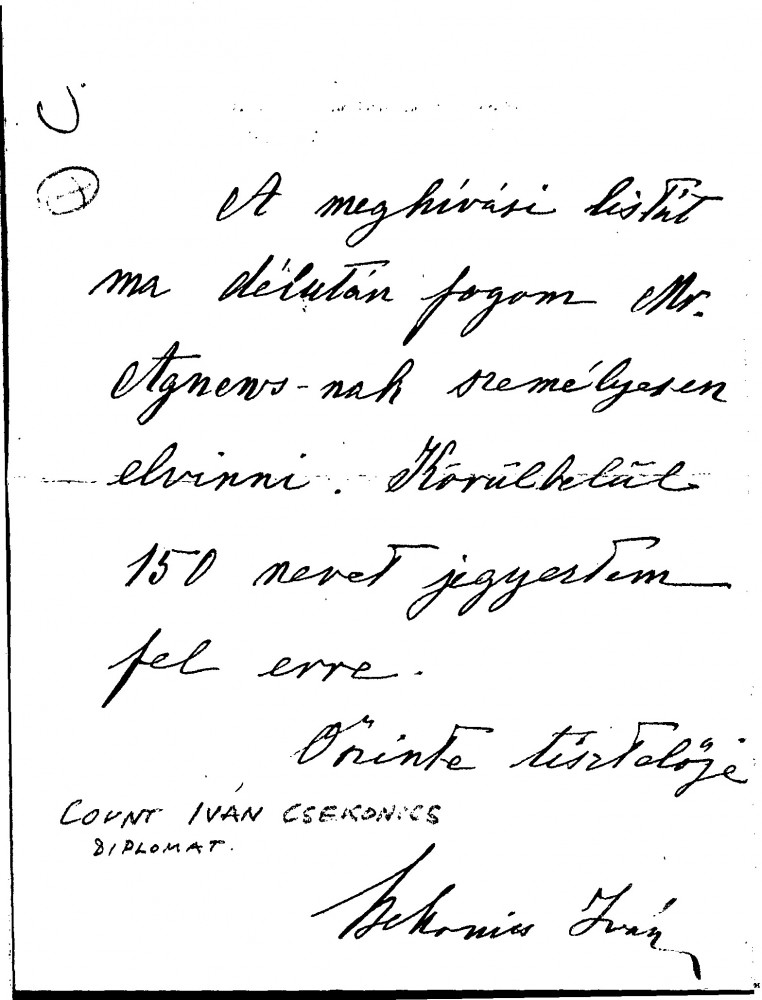 C.
A meghívási listát
ma délután fogom Mr.
Agnews-nak személyesen
elvinni. Körülbelül
150 nevet jegyeztem
fel erre.
Őszinte tisztelője
COUNT IVÁN CSEKONICS
DIPLOMAT.
Csekonics Iván